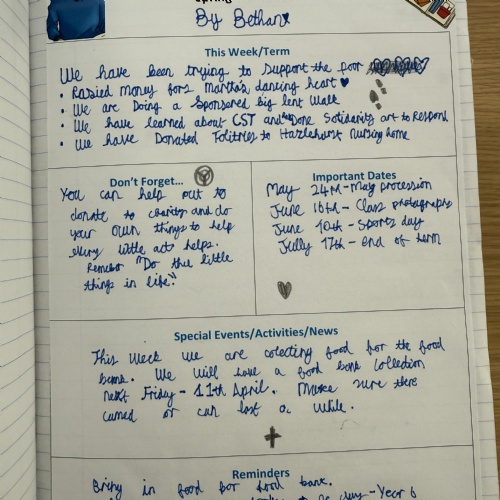 By Bethan
This Week/Term
We have been trying to support the poor
• Rasied money for Martha's dancing heart
• We are Doing a Sponsored big lent walk
• We have learned about CST and Done Solidarity art to Respond
• We have Donated Toiltries to Hazlehurst nursing home
Don't Forget...
You can help out to
donate to charity and do
your own things to help
every little act helps.
Remeber "Do the little
things in life."
Important Dates
May 24th - May procession
June 16th - Class photographs
June 20th - Sports day
Jully 17th - end of term
Special Events/Activities/News
This week we are colecting food for the food
bank. We will have a food bank collection
next Friday - 11th April. Make sure there
canned or can last a while.
Reminders
Bring in food for food bank.
day - Year 6